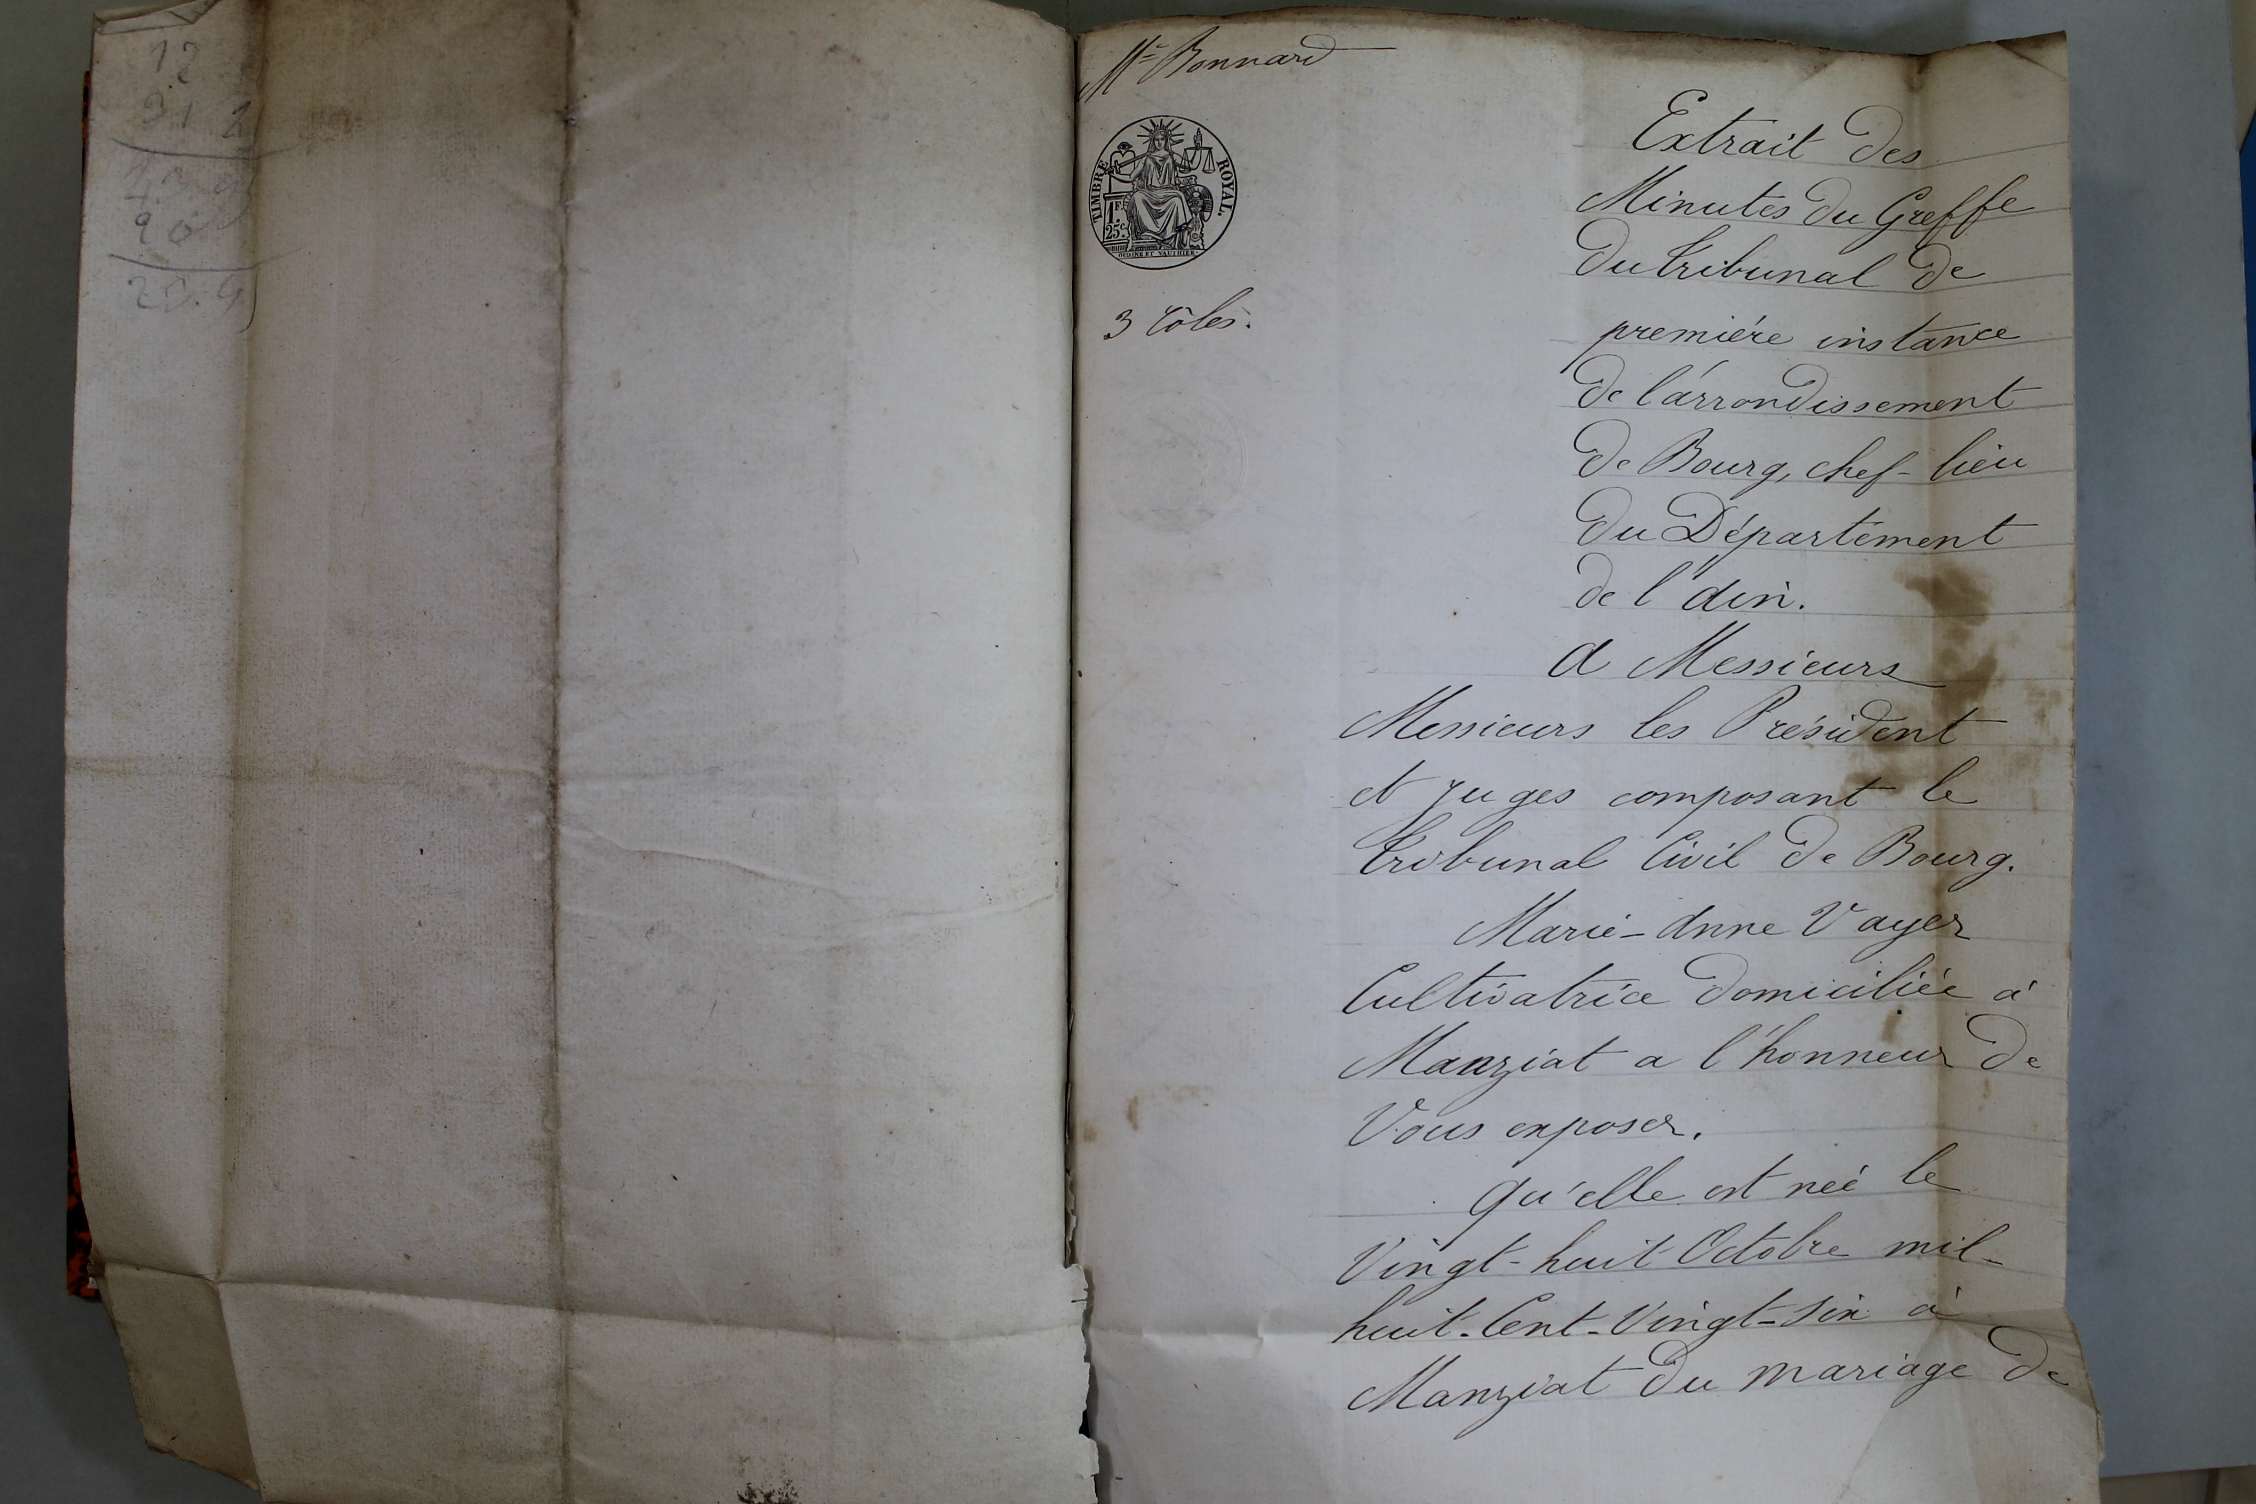 12
31 2
90
20.9
Me Bonnard
TIMBRE ROYAL.
1F.
25c.
3 rôles.
Extrait des
Minutes du Greffe
du tribunal de
première instance
de l'arrondissement
de Bourg, chef-lieu
du Département
de l'Ain.
A Messieurs
Messieurs les Président
et Juges composant le
tribunal Civil de Bourg.
Marie-Anne Vayer
Cultivatrice domiciliée à
Manziat a l'honneur de
Vous exposer.
qu'elle est née le
Vingt-huit Octobre mil-
huit-Cent-Vingt-Six à
Manziat du mariage de